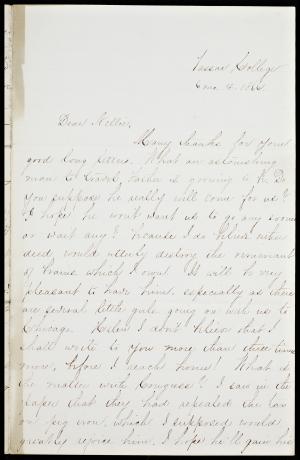 Vassar College
Dear Nellie,
Many thanks for your
good long letter. What an astonishing
man to travel, Father is growing to be. Do
you suppose he really will come for us?
I hope he won't want us to go any sooner
or wait any? because I do
deed, would utterly destroy the remnant
of brains which I own! It will be very
pleasant to have him, especially as there
are several little girls going on with us to
Chicago. I don't believe that I
shall write to you more than three times
more, before I reach home! What is
the matter with Congress? I saw in the
paper that they had repealed the tax
on pig iron, which I supposed would
greatly rejoice him. I hope he'll gain his